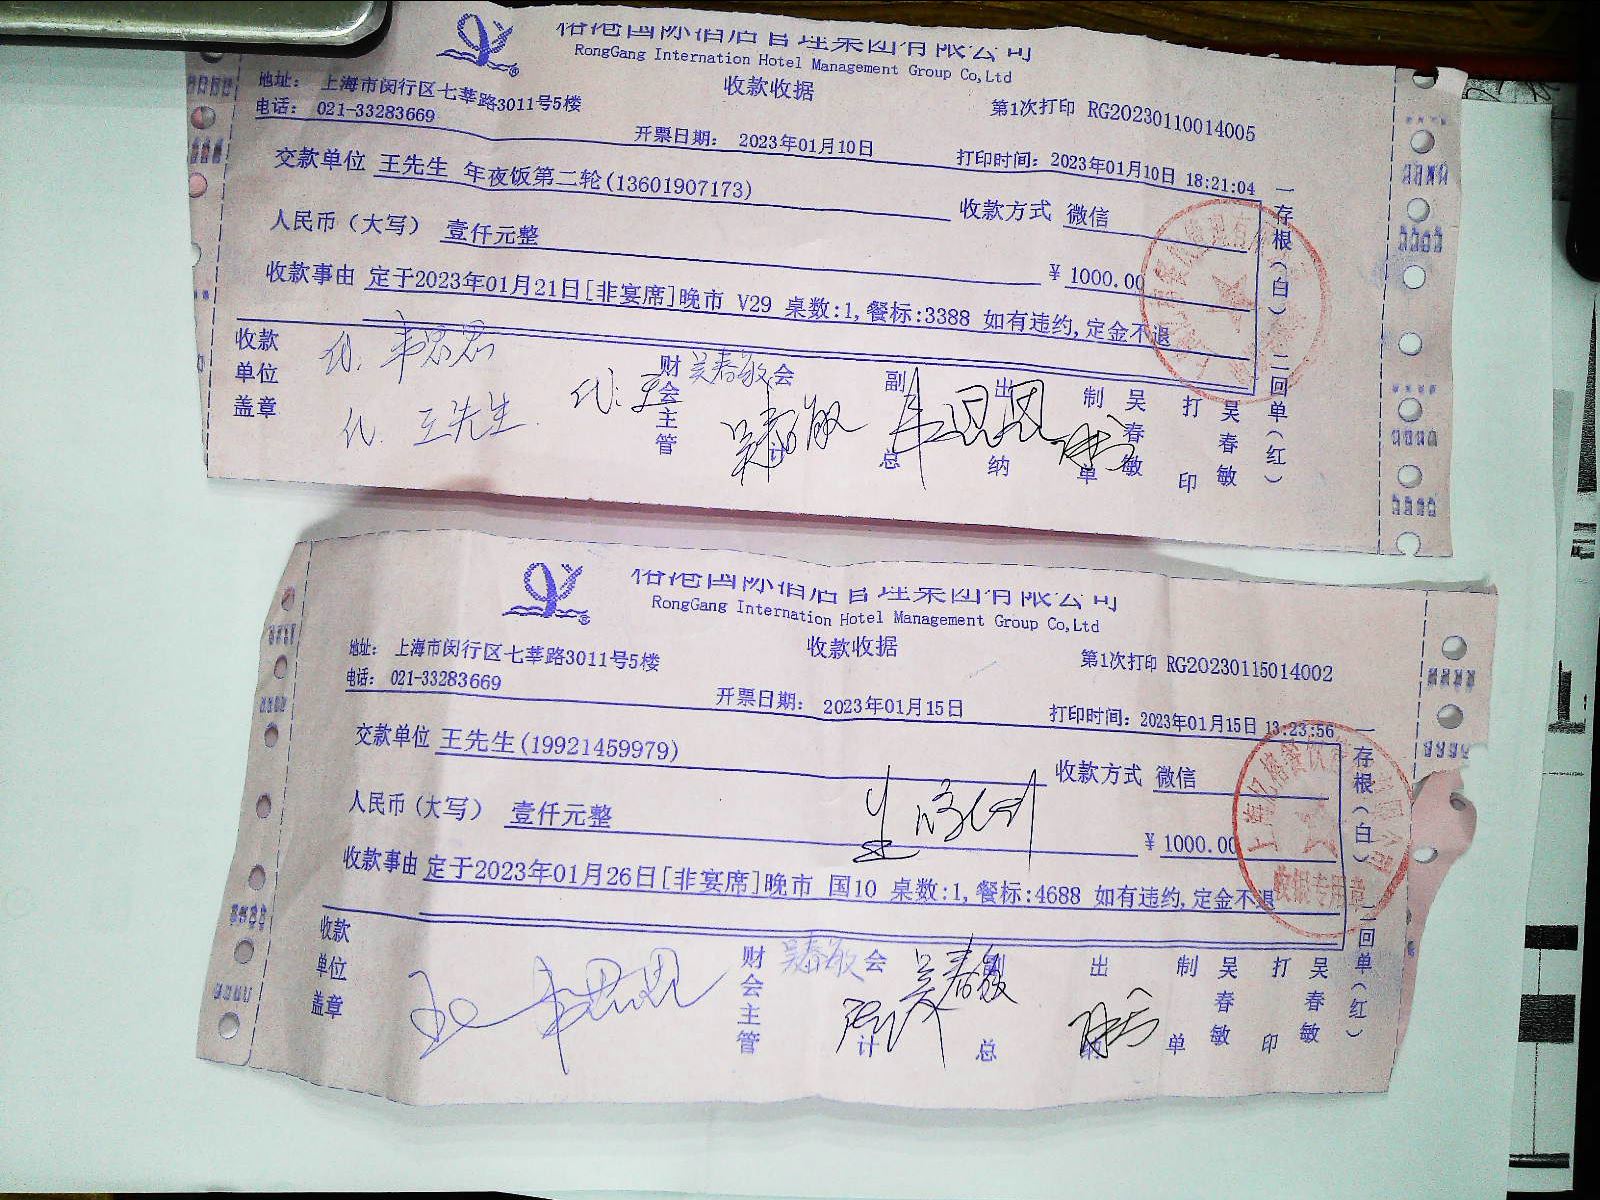 裕港国际酒店管理集团有限公司
RongGang Internation Hotel Management Group Co,Ltd
收款收据
地址： 上海市闵行区七莘路3011号5楼
第1次打印 RG20230110014005
电话： 021-33283669
开票日期： 2023年01月10日
打印时间：2023年01月10日 18:21:04
交款单位 王先生 年夜饭第二轮(13601907173)
收款方式 微信
人民币（大写） 壹仟元整
¥ 1000.00
收款事由 定于2023年01月21日[非宴席]晚市 V29 桌数:1,餐标:3388 如有违约,定金不退
一存根（白） 二回单（红）
收款单位盖章
代. 王先生
财会主管 吴春敏
会计 吴春敏
副总
出纳
制单 吴春敏
打印 吴春敏
裕港国际酒店管理集团有限公司
RongGang Internation Hotel Management Group Co,Ltd
收款收据
地址： 上海市闵行区七莘路3011号5楼
第1次打印 RG20230115014002
电话： 021-33283669
开票日期： 2023年01月15日
打印时间：2023年01月15日 13:23:56
交款单位 王先生(19921459979)
收款方式 微信
人民币（大写） 壹仟元整
¥ 1000.00
收款事由 定于2023年01月26日[非宴席]晚市 国10 桌数:1,餐标:4688 如有违约,定金不退
一存根（白） 二回单（红）
收银专用章
收款单位盖章
财会主管 吴春敏
会计 吴春敏
副总
出纳
制单 吴春敏
打印 吴春敏